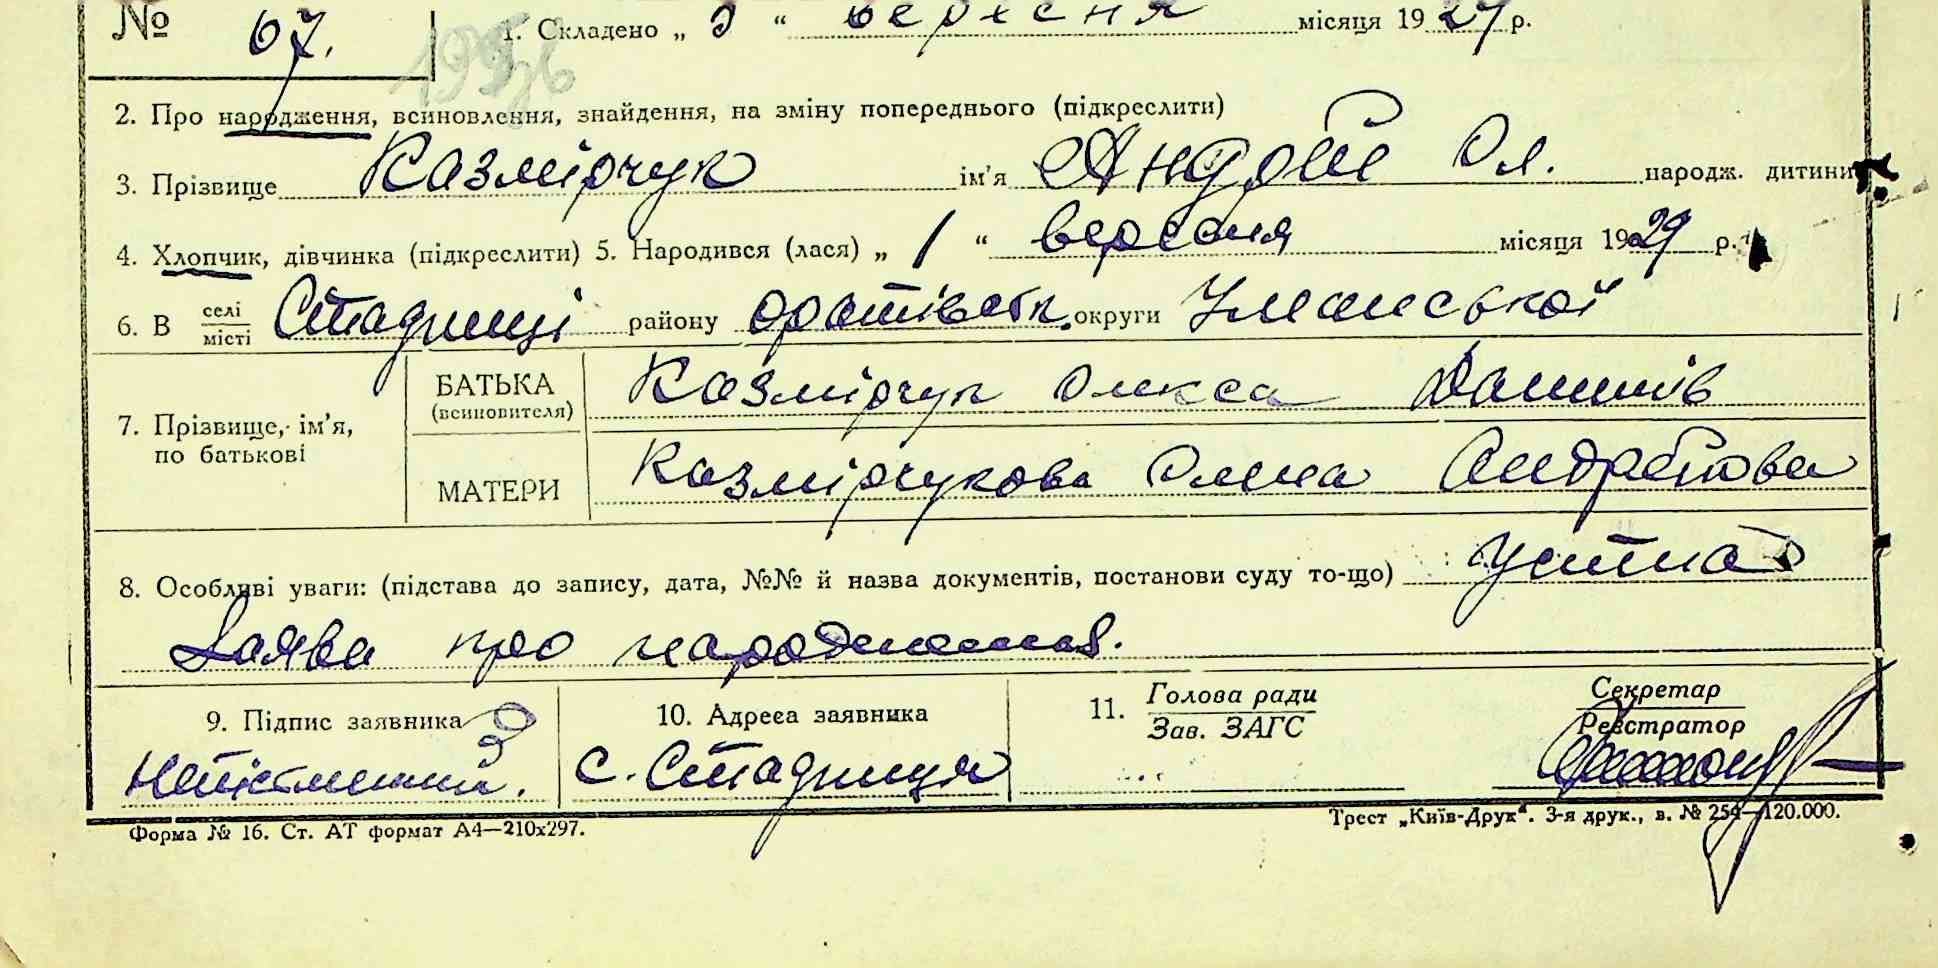 № 67. 1. Складено „ 5 “ вересня місяця 1929 р.
2. Про народження, всиновлення, знайдення, на зміну попереднього (підкреслити)
3. Прізвище Казмірчук ім'я Андрій Ол. народж. дитини
4. Хлопчик, дівчинка (підкреслити) 5. Народився (лася) „ 1 “ вересня місяця 1929 р.
6. В селі/місті Стадниці району Оратівськ. округи Уманської
7. Прізвище, ім'я, по батькові
БАТЬКА (всиновителя) Казмірчук Олекса
МАТЕРИ Казмірчукова Олена Андрієва
8. Особливі уваги: (підстава до запису, дата, №№ й назва документів, постанови суду то-що) устна
Заява про народження.
9. Підпис заявника 10. Адреса заявника 11. Голова ради Секретар
Зав. ЗАГС Реєстратор
Неписьменний. с. Стадниця
Форма № 16. Ст. АТ формат А4—210х297. Трест „Київ-Друк“. 3-я друк., в. № 254—120.000.